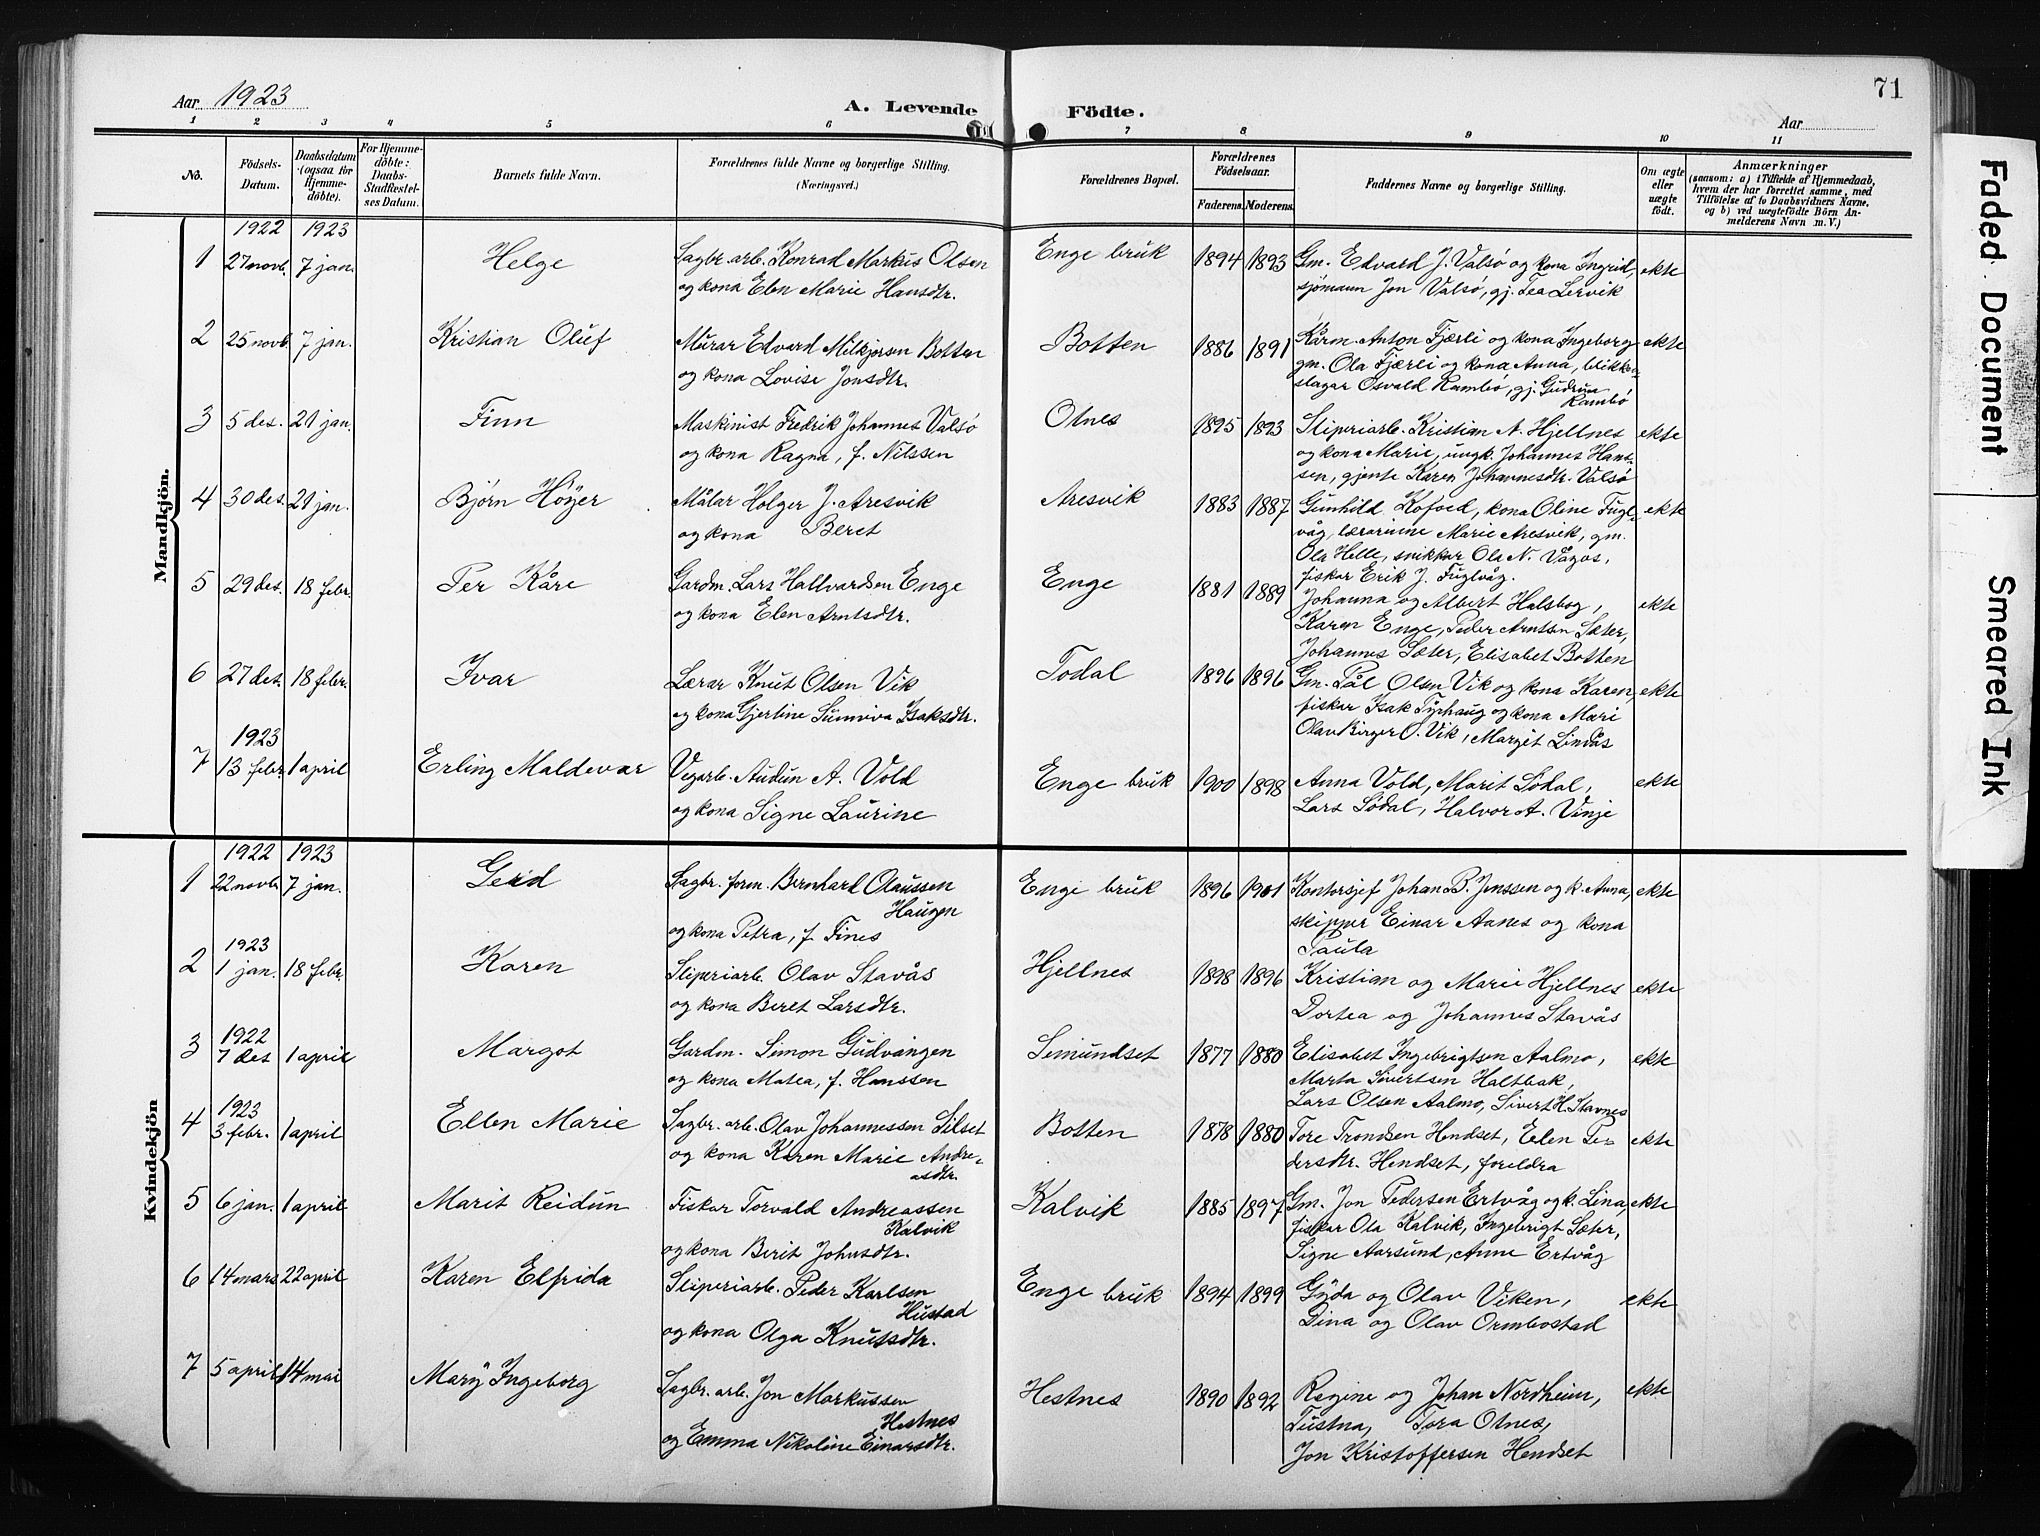 71
Aar 1923
A. Levende Födte.
Aar
1 2 3 4 5 6 7 8 9 10 11
No.
Födsels-Datum.
Daabsdatum (ogsaa for Hjemme-döbte).
For Hjemme-döbte: Daabs-Stadfæstel-ses Datum.
Barnets fulde Navn.
Forældrenes fulde Navne og borgerlige Stilling. (Næringsvei.)
Forældrenes Bopæl.
Forældrenes Födselsaar.
Faderens. Moderens.
Faddernes Navne og borgerlige Stilling.
Om ægte eller uægte födt.
Anmærkninger
(saasom: a) i Tilfælde af Hjemmedaab,
hvem der har forrettet samme, med
Tilföielse af to Daabsvidners Navne,
og b) ved uægtefödte Börn An-
melderens Navn m. V.)
Mandkjön.
1922 1923
1 27 novb. 7 jan. Helge Sagbr. arb. Konrad Markus Olsen Enge bruk 1894 1893 Gm. Edvard J. Valsø og kona Ingrid, ekte
og kona Elen Marie Hansdtr. sjømann Jon Valsø, gj. Tea Lervik
2 25 novb. 7 jan. Kristian Oluf Murar Edvard Milkjorsen Botten Botten 1886 1891 Kårm. Anton Fjærli og kona Ingeborg ekte
og kona Lovise Jonsdtr. gm. Ola Fjærli og kona Anna, blikken-
slagar Osvald Rambø, gj. Gudrun
Rambø
3 5 des. 21 jan. Finn Maskinist Fredrik Johannes Valsø Otnes 1895 1893 Sliperiarb. Kristian N. Hjellnes ekte
og kona Ragna, f. Nilssen og kona Marie, ungk. Johannes Hans-
sen, gjente Karen Johannesdtr. Valsø
4 30 des. 21 jan. Bjørn Höyer Målar Holger J. Aresvik Aresvik 1883 1887 Gunhild Kofoed, kona Oline Fugl- ekte
og kona Beret våg, lærarinne Marie Aresvik, gm.
Ola Helle, snikkar Ola N. Vågos,
fiskar Erik J. Fuglvåg.
5 29 des. 18 febr. Per Kåre Gardm. Lars Hallvardsen Enge Enge 1881 1889 Johanna og Albert Halsbog, ekte
og kona Elen Arntsdtr. Karen Enge, Peder Arntsen Sæter,
Johannes Sæter, Elisabet Botten
6 27 des. 18 febr. Ivar Lærar Knut Olsen Vik Todal 1896 1896 Gm. Pål Olsen Vik og kona Karen, ekte
og kona Gjertine Sunniva Isaksdtr. fiskar Isak Tyrhaug og kona Mæri
Olav Birger O. Vik, Margit Lindås
1923
7 13 febr. 1 april Erling Maldevar Vegarb. Audun A. Vold Enge bruk 1900 1898 Anna Vold, Marit Södal, ekte
og kona Signe Laurine Lars Södal, Halvor A. Vinje
Kvindekjön
1922 1923
1 22 novb. 7 jan. Gerd Sagbr. form. Bernhard Olaussen Enge bruk 1896 1901 Kontorsjef Johan B. Jenssen og k. Anna, ekte
Haugen skipper Einar Aanes og kona
og kona Petra, f. Fines Paula
1923
2 1 jan. 18 febr. Karen Sliperiarb. Olav Stavås Hjellnes 1898 1896 Kristian og Marie Hjellnes ekte
og kona Beret Larsdtr. Dortea og Johannes Stavås
1922
3 7 des 1 april Margot Gardm. Simon Gudvangen Semundset 1877 1880 Elisabet Ingebrigtsen Aalmo, ekte
og kona Matea, f. Hanssen Marta Sivertsen Haltbak,
Lars Olsen Aalmo, Sivert H. Stavnes
1923
4 3 febr. 1 april Ellen Marie Sagbr. arb. Olav Johannessen Silset Botten 1878 1880 Tore Trondsen Hendset, Elen Pe- ekte
og kona Karen Marie Andre- dersdtr. Hendset, foreldra
asdtr.
5 6 jan. 1 april Marit Reidun Fiskar Torvald Andreassen Kalvik 1885 1897 Gm. Jon Pedersen Ertvåg og k. Lina, ekte
Kalvik fiskar Ola Kalvik, Ingebrigt Sæter,
og kona Berit Johnsdtr. Signe Aarsund, Anne Ertvåg
6 14 mars 22 april Karen Elfrida Sliperiarb. Peder Karlsen Enge bruk 1894 1899 Gyda og Olav Viken, ekte
Hustad
og kona Olga Knutsdtr. Dina og Olav Ormbostad
7 5 april 14 mai Mary Ingeborg Sagbr. arb. Jon Markussen Hestnes 1890 1892 Regine og Johan Nordheim, ekte
Hestnes Tustna, Tora Otnes,
og Emma Nikoline Einarsdtr. Jon Kristoffersen Hendset
Faded Document
Smeared Ink